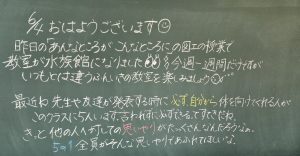 6/4 おはようございます
昨日のあんなところが こんなところにこの図工の授業で
教室が水族館になりました 今週一週間だけですが
いつもとは違うふんいきの教室を楽しみましょう
最近ね 先生や友達が発表する時に 必ず自分から 体を向けてくれる人が
このクラスに5人います。言われずに必ずできるってすごいね。
きっと他の人へ対しての思いやりがたっくさんなんだろうなぁ。
5の1 全員がそんな思いやりであふれてほしいな。